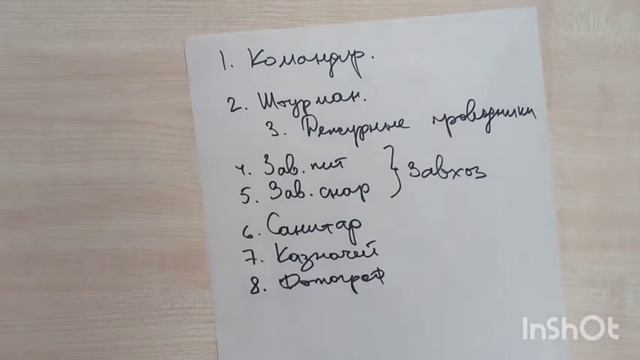 1. Командир.
2. Штурман.
3. Дежурные проводники
4. Зав. пит
5. Зав. снар } Завхоз
6. Санитар
7. Казначей
8. Фотограф
InShOt